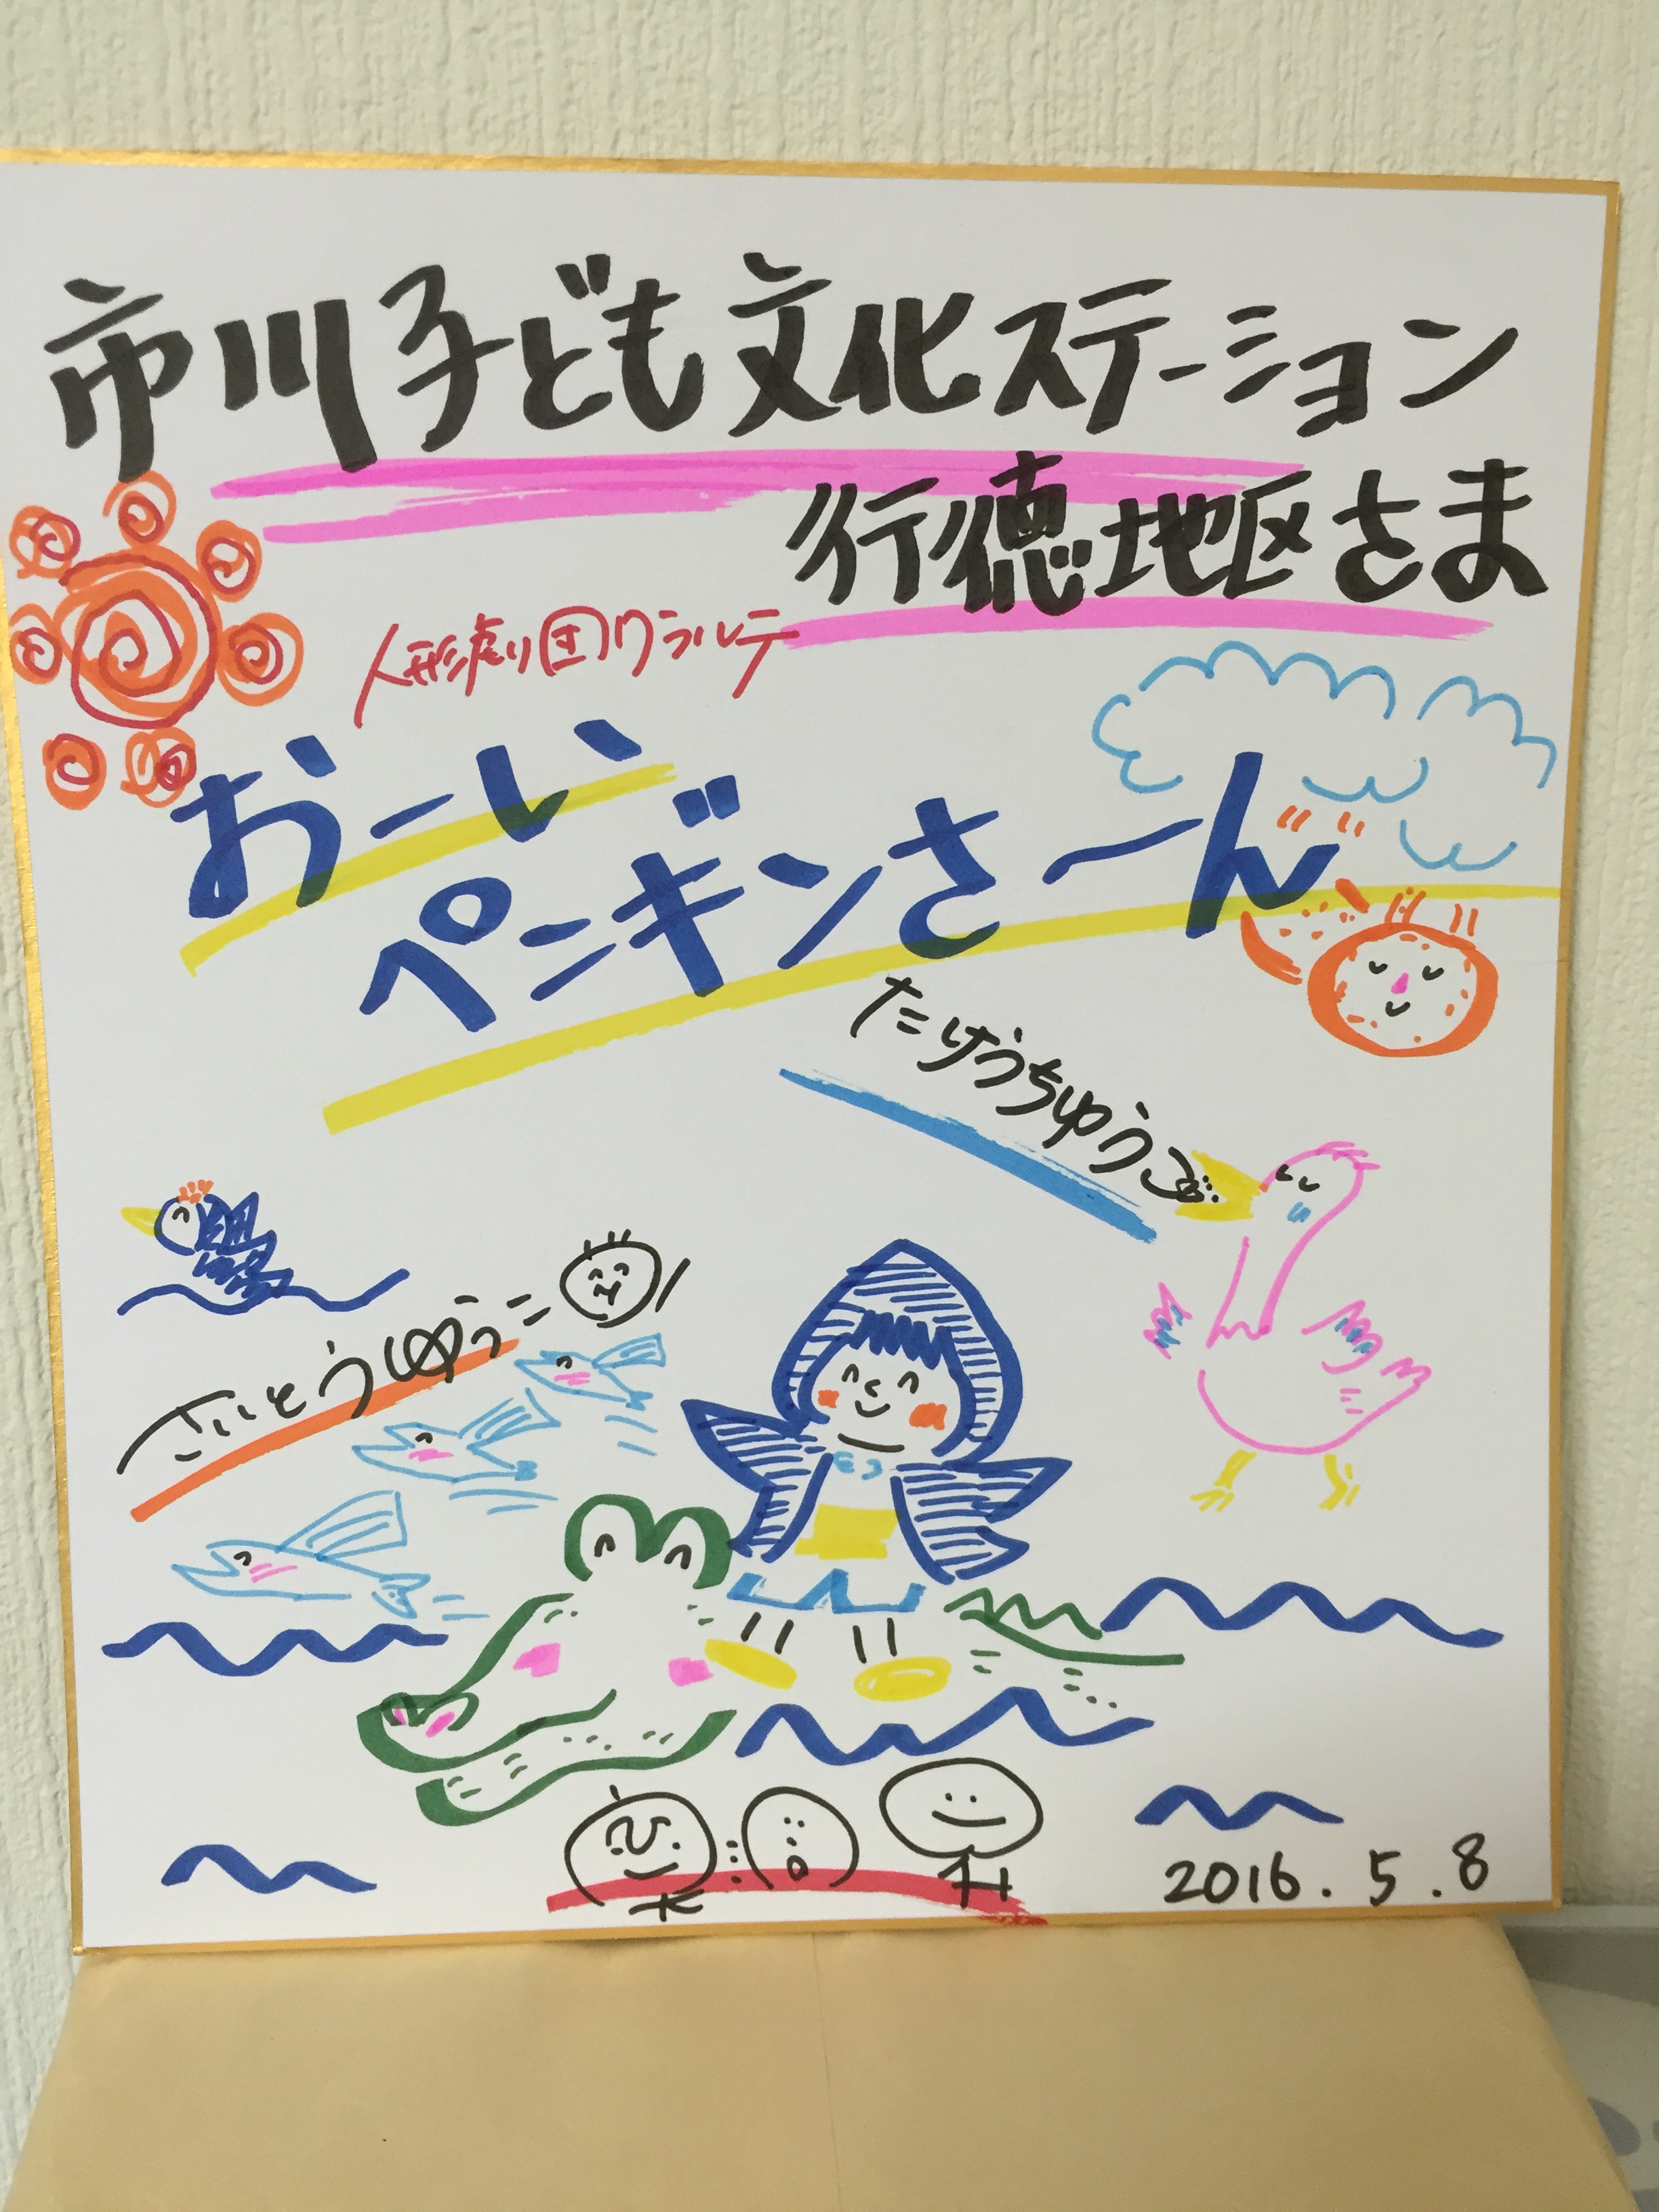 市川子ども文化ステーション
行徳地区さま
人形劇団クラルテ
おーい
ペンギンさーん
たけうちゆうご
さいとうゆうこ
2016.5.8